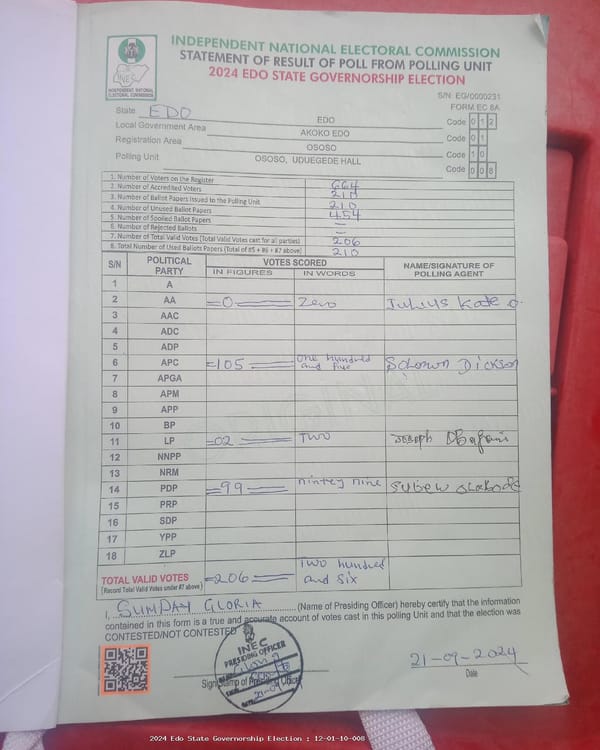 INDEPENDENT NATIONAL ELECTORAL COMMISSION
STATEMENT OF RESULT OF POLL FROM POLLING UNIT
2024 EDO STATE GOVERNORSHIP ELECTION
INEC
INDEPENDENT NATIONAL ELECTORAL COMMISSION
S/N: EG/0000231
FORM EC 8A
State EDO EDO Code 0 1 2
Local Government Area AKOKO EDO Code 0 1
Registration Area OSOSO Code 1 0
Polling Unit OSOSO, UDUEGEDE HALL Code 0 0 8
1. Number of Voters on the Register 664
2. Number of Accredited Voters 210
3. Number of Ballot Papers Issued to the Polling Unit 210
4. Number of Unused Ballot Papers 454
5. Number of Spoiled Ballot Papers =
6. Number of Rejected Ballots =
7. Number of Total Valid Votes (Total Valid Votes cast for all parties) 206
8. Total Number of Used Ballots Papers (Total of #5 + #6 + #7 above) 210
S/N POLITICAL PARTY VOTES SCORED NAME/SIGNATURE OF POLLING AGENT
IN FIGURES IN WORDS
1 A
2 AA =0= Zero Julius Kate O.
3 AAC
4 ADC
5 ADP
6 APC =105= one hundred and five Solomon Dickson
7 APGA
8 APM
9 APP
10 BP
11 LP =02= Two Joseph
12 NNPP
13 NRM
14 PDP =99= nintey nine
15 PRP
16 SDP
17 YPP
18 ZLP
TOTAL VALID VOTES =206= Two hundred and six
(Record Total Valid Votes under #7 above)
I, SUMDAY GLORIA (Name of Presiding Officer) hereby certify that the information
contained in this form is a true and accurate account of votes cast in this polling Unit and that the election was
CONTESTED/NOT CONTESTED
INEC
PRESIDING OFFICER
Sign/Stamp of Presiding Officer
21-09-2024
Date
2024 Edo State Governorship Election : 12-01-10-008